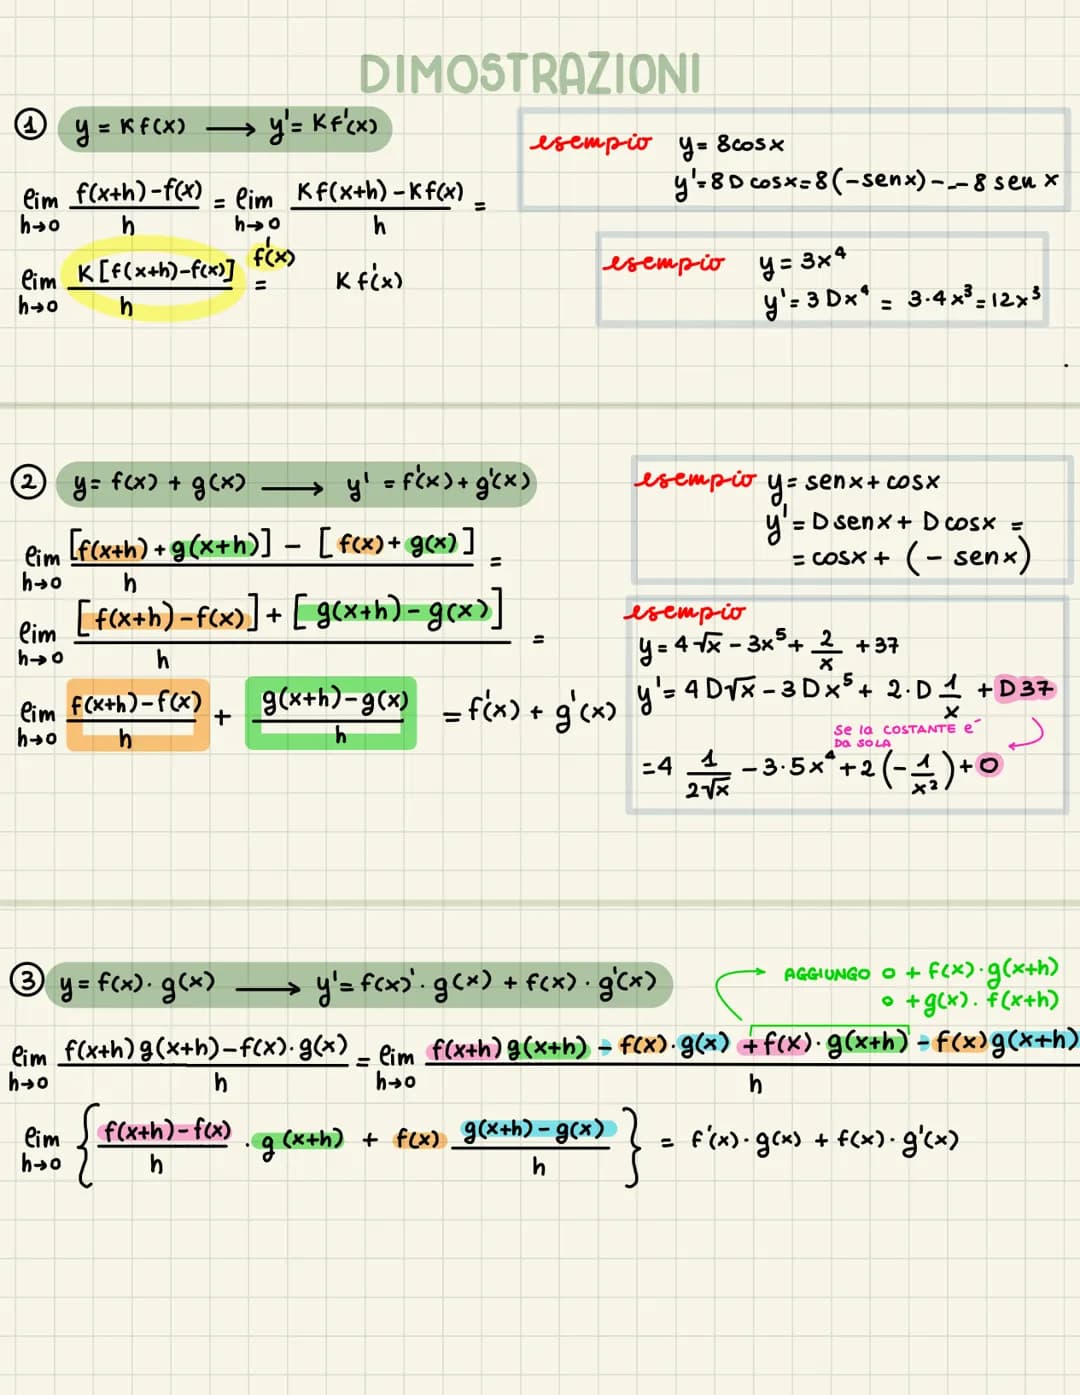 DIMOSTRAZIONI
① y = K f(x) ⟶ y' = K f'(x)
lim h→0 f(x+h)-f(x) / h = lim h→0 K f(x+h) - K f(x) / h =
lim h→0 K [f(x+h)-f(x)] / h = f'(x) K f'(x)
esempio y = 8cosx
y' = 8 D cosx = 8(-senx) - -- 8 sen x
esempio y = 3x⁴
y' = 3 Dx⁴ = 3·4x³ = 12x³
② y = f(x) + g(x) ⟶ y' = f'(x) + g'(x)
lim h→0 [f(x+h) + g(x+h)] - [f(x) + g(x)] / h =
lim h→0 [f(x+h) - f(x)] + [g(x+h) - g(x)] / h =
lim h→0 f(x+h)-f(x) / h + g(x+h)-g(x) / h = f'(x) + g'(x)
esempio y = senx + cosx
y' = D senx + D cosx =
= cosx + (- senx)
esempio
y = 4√x - 3x⁵ + 2/x + 37
y' = 4D√x - 3Dx⁵ + 2·D 1/x + D37
Se la COSTANTE e'
DA SOLA
= 4 1/2√x - 3·5x⁴ + 2(-1/x²) + 0
③ y = f(x)· g(x) ⟶ y' = f(x)'· g(x) + f(x) · g'(x)
AGGIUNGO o + f(x)·g(x+h)
o + g(x). f(x+h)
lim h→0 f(x+h)g(x+h)-f(x)·g(x) / h = lim h→0 f(x+h)g(x+h) - f(x)·g(x) + f(x)·g(x+h) - f(x)g(x+h) / h
lim h→0 { f(x+h)-f(x) / h · g(x+h) + f(x) g(x+h)-g(x) / h } = f'(x)·g(x) + f(x)·g'(x)